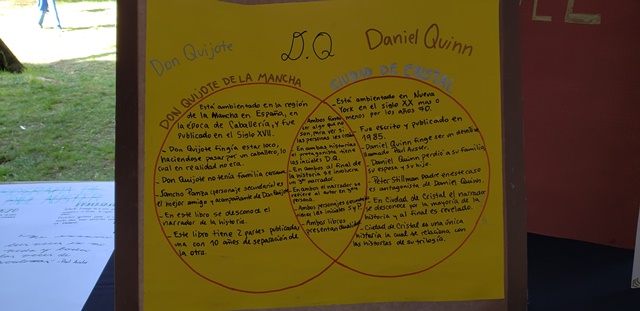 Don Quijote
D.Q
Daniel Quinn
DON QUIJOTE DE LA MANCHA
CIUDAD DE CRISTAL
- Está ambientado en la región
de la Mancha en España, en
la época de Caballería, y fue
publicado en el Siglo XVII.
- Don Quijote fingía estar loco,
haciendose pasar por un caballero, lo
cual en realidad no era.
- Don Quijote no tenía familia cercana.
- Sancho Panza (personaje secundario) es
el mejor amigo y acompañante de Don Quijote.
- En este libro se desconoce el
narrador de la historia.
- Este libro tiene 2 partes publicadas
una con 10 años de separación de
la otra.
- Ambos fingen
ser algo que no
son, para ver si
las personas les creen
- En ambas historias
el protagonista tiene
las iniciales D.Q.
- En ambos al final de
la historia se involucra
un 3er narrador.
- En ambos el narrador se
refiere al autor en 3era
persona.
- Ambos personajes
tienen las iniciales S y P
- Ambos libros
presentan
- Está ambientado en Nueva
York en el siglo XX mas o
menos por los años 70.
- Fue escrito y publicado en
1985.
- Daniel Quinn finge ser un detective
llamado Paul Auster.
- Daniel Quinn perdió a su familia,
su esposa y su hijo.
- Peter Stillman padre en este caso
es antagonista de Daniel Quinn.
- En Ciudad de Cristal el narrador
se desconoce por la mayoría de la
historia y al final es revelado.
- Ciudad de Cristal es una única
historia la cual se relaciona con
las historias de su trilogía.